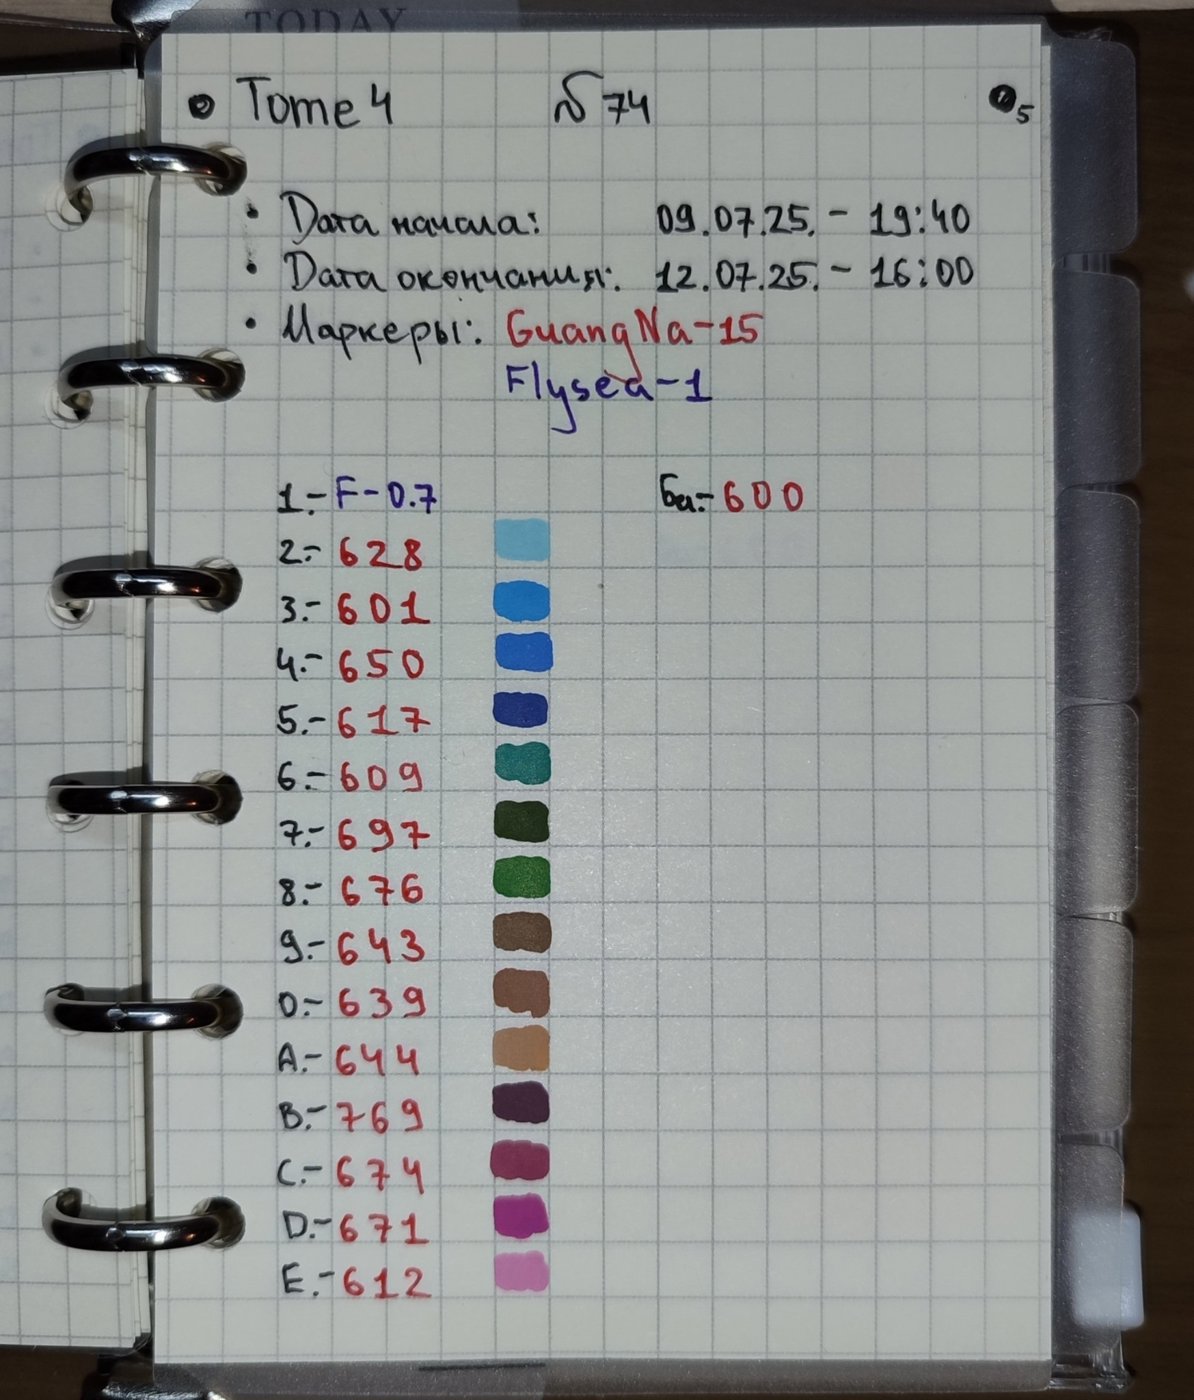 TODAY
Tome 4 №74 5
• Дата начала: 09.07.25. - 19:40
• Дата окончания: 12.07.25. - 16:00
• Маркеры: GuangNa-15
Flysea-1
1.- F-0.7 Ба:- 600
2.- 628
3.- 601
4.- 650
5.- 617
6.- 609
7.- 697
8.- 676
9.- 643
0.- 639
A.- 644
B.- 769
C.- 674
D.- 671
E.- 612